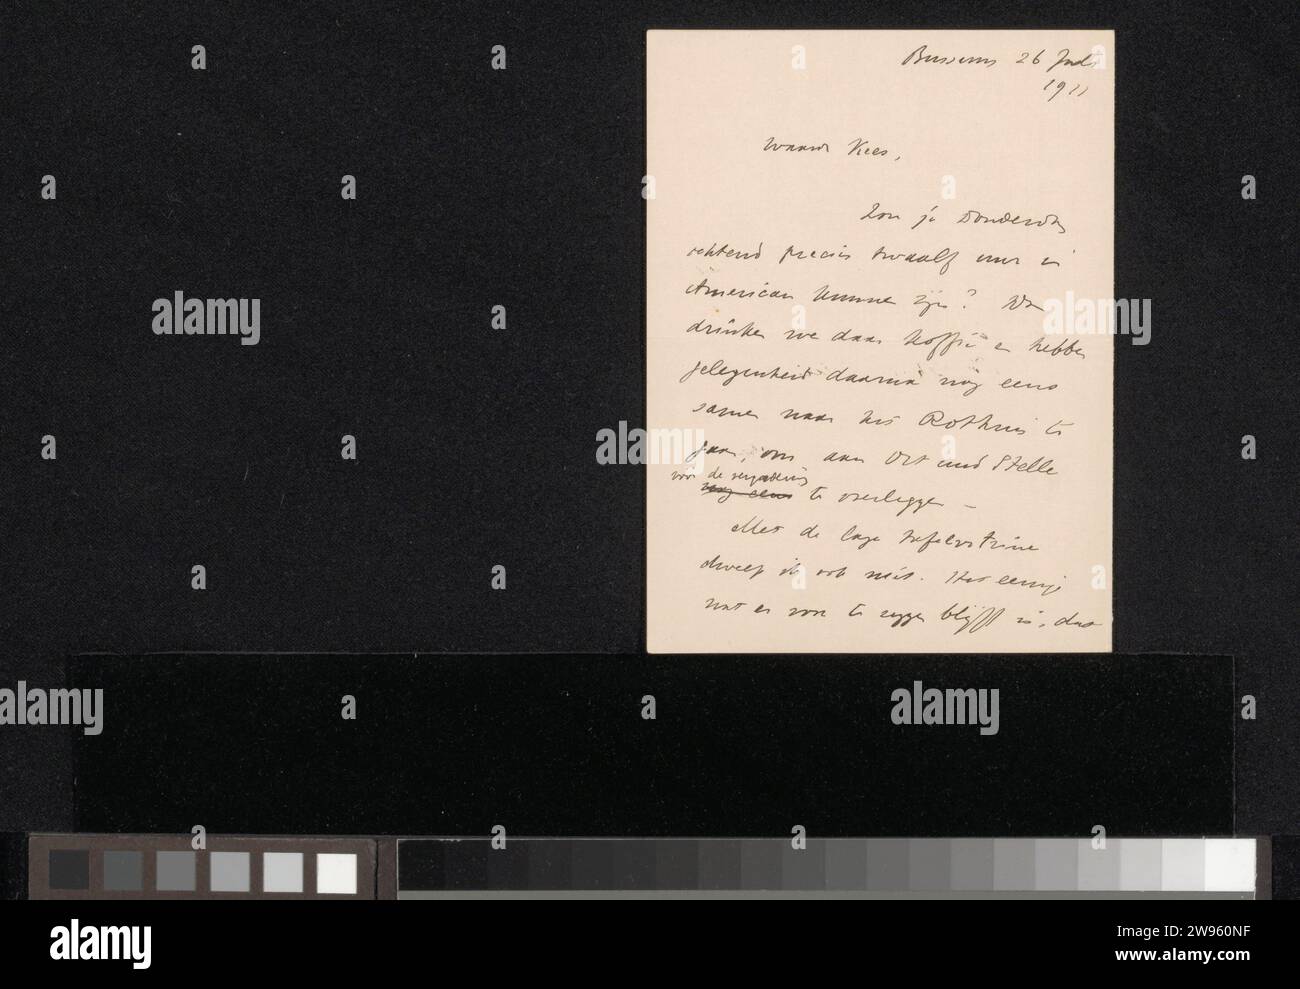 Bussum 26 Juli
1911
Waarde Kees,
Zou je Donderdag
ochtend precies twaalf uur in
American kunnen zijn? Dan
drinken we daar koffie en hebben
gelegenheid daarna nog eens
samen naar het Rothuis te
gaan, om aan Ort und Stelle
voor de vergadering
nog eens te overleggen –
Met de lage tafel
dweep ik ook niet. Het eenige
wat er voor te zeggen blijft is, dat
a
alamy
alamy
Image ID: 2W960NF
www.alamy.com